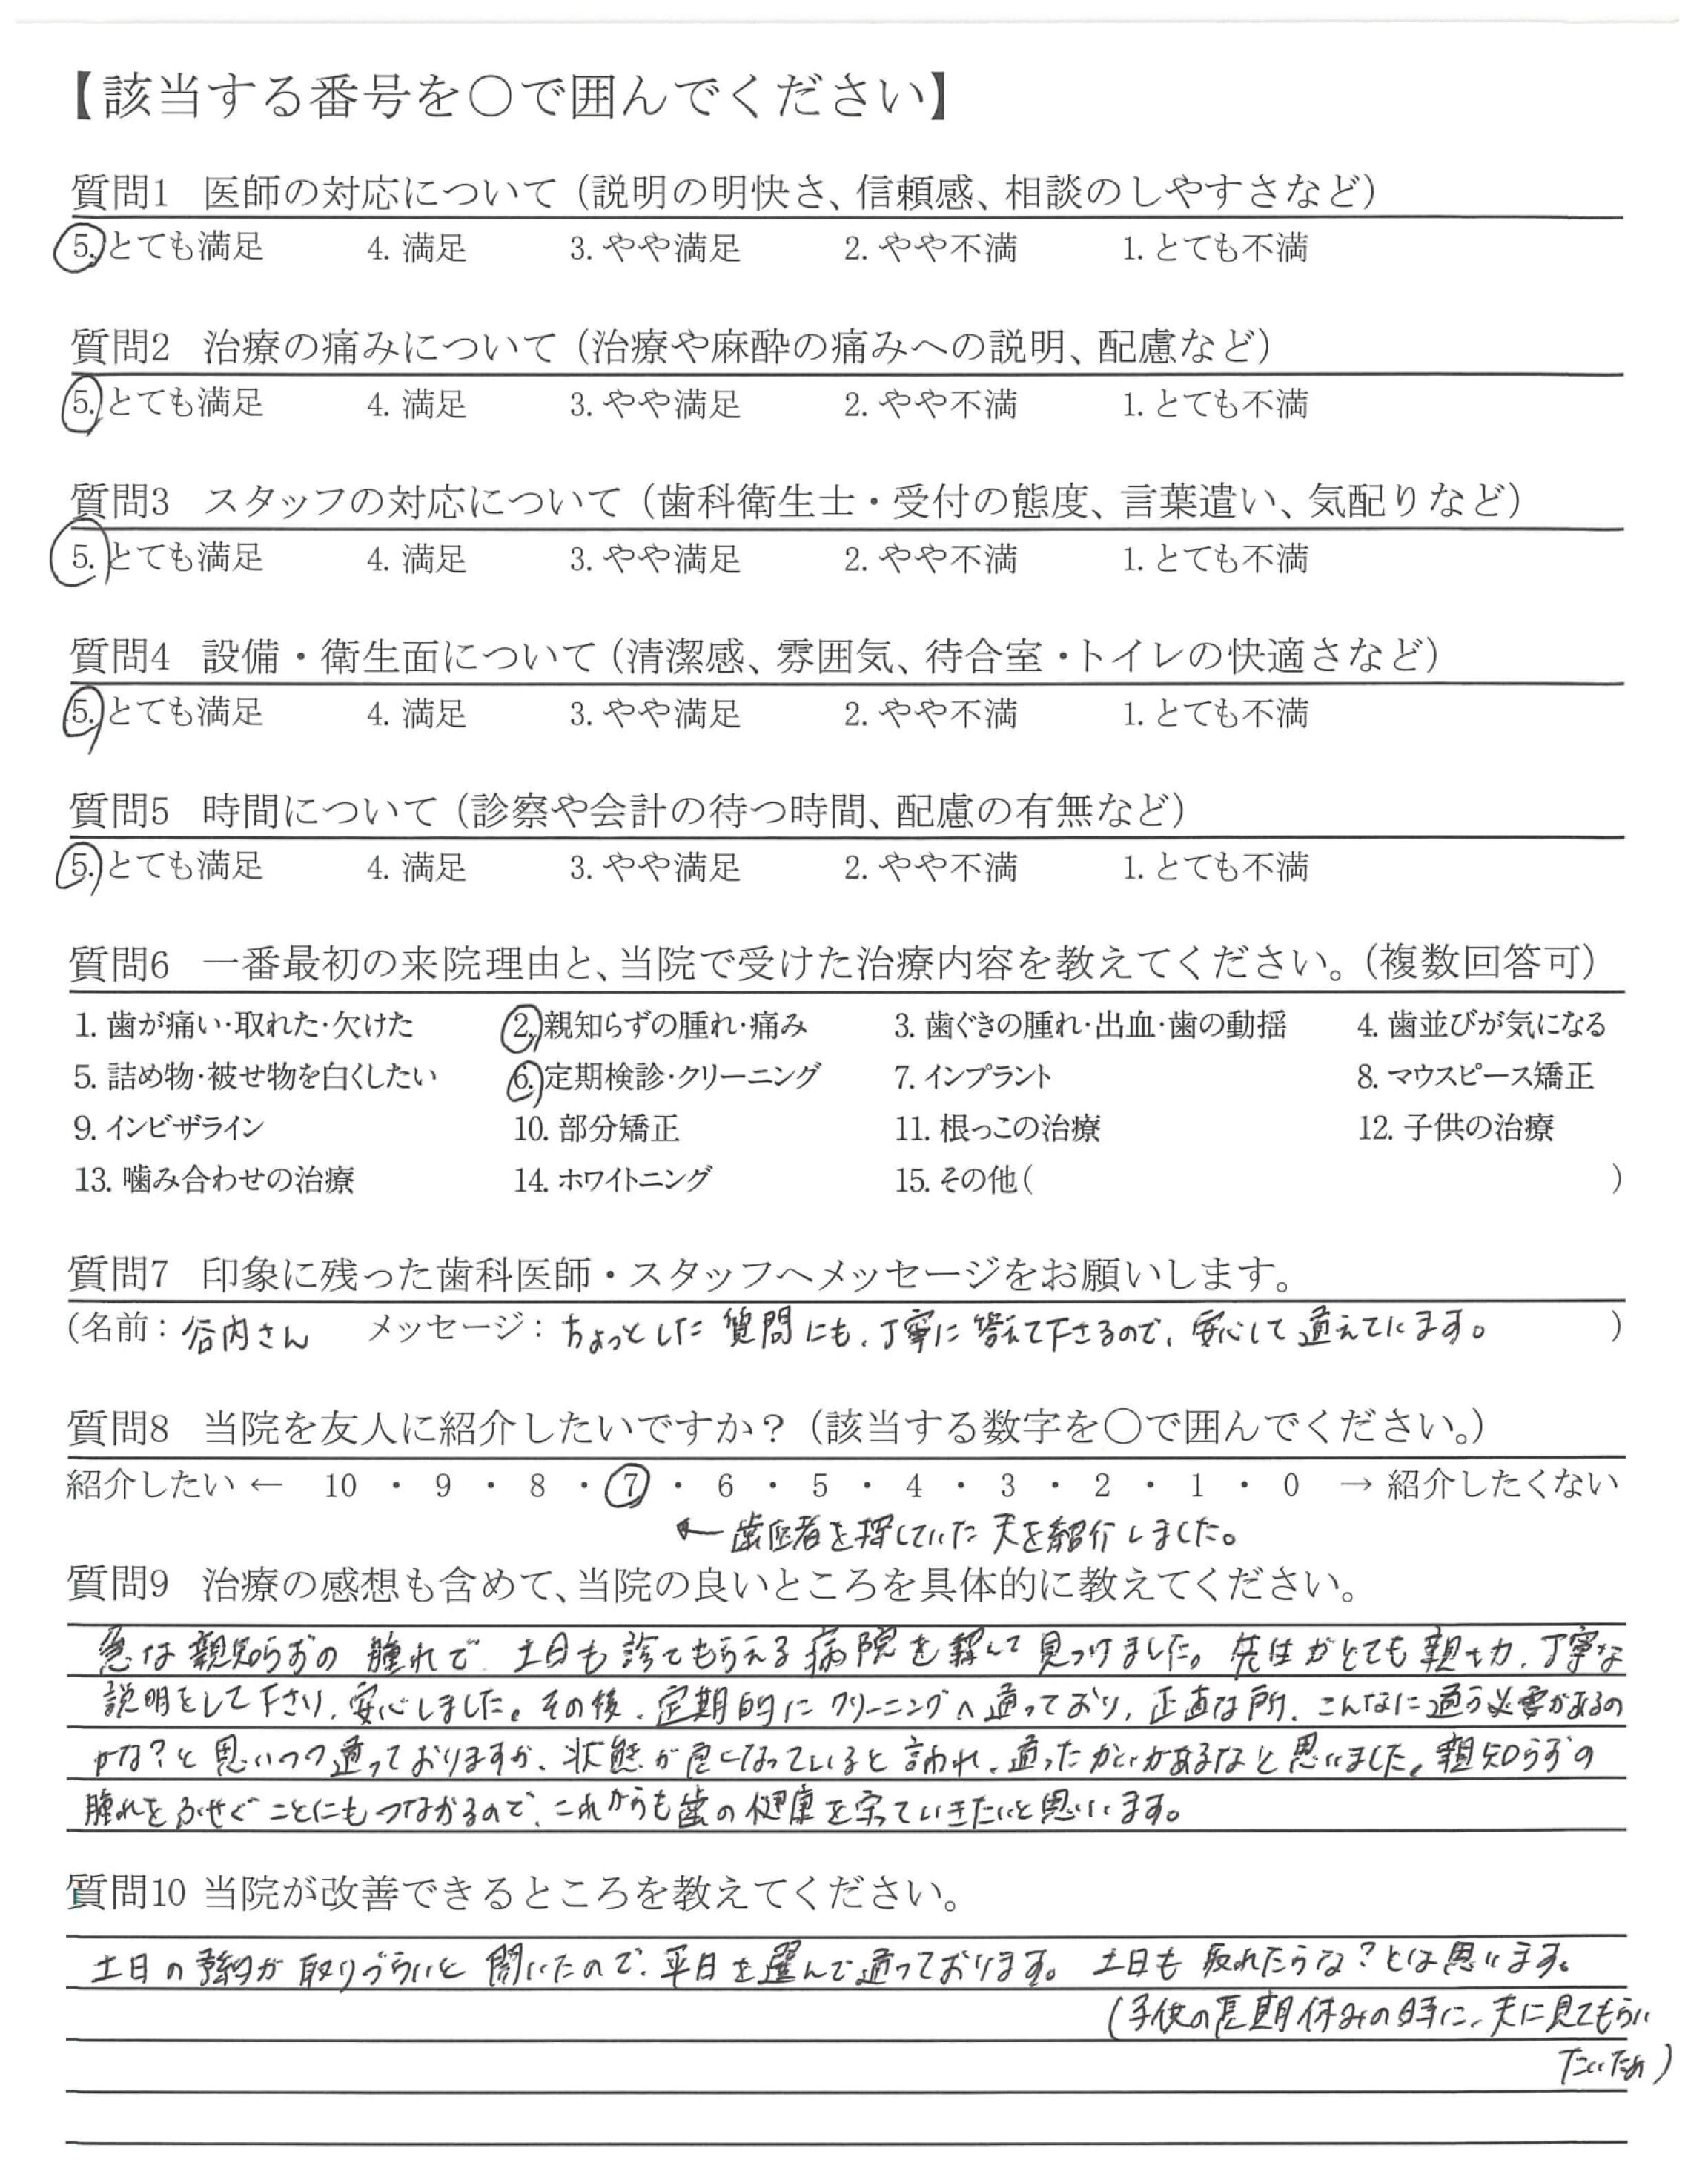 【該当する番号を○で囲んでください】
質問1 医師の対応について（説明の明快さ、信頼感、相談のしやすさなど）
5. とても満足 4. 満足 3. やや満足 2. やや不満 1. とても不満
質問2 治療の痛みについて（治療や麻酔の痛みへの説明、配慮など）
5. とても満足 4. 満足 3. やや満足 2. やや不満 1. とても不満
質問3 スタッフの対応について（歯科衛生士・受付の態度、言葉遣い、気配りなど）
5. とても満足 4. 満足 3. やや満足 2. やや不満 1. とても不満
質問4 設備・衛生面について（清潔感、雰囲気、待合室・トイレの快適さなど）
5. とても満足 4. 満足 3. やや満足 2. やや不満 1. とても不満
質問5 時間について（診察や会計の待つ時間、配慮の有無など）
5. とても満足 4. 満足 3. やや満足 2. やや不満 1. とても不満
質問6 一番最初の来院理由と、当院で受けた治療内容を教えてください。（複数回答可）
1. 歯が痛い・取れた・欠けた 2. 親知らずの腫れ・痛み 3. 歯ぐきの腫れ・出血・歯の動揺 4. 歯並びが気になる
5. 詰め物・被せ物を白くしたい 6. 定期検診・クリーニング 7. インプラント 8. マウスピース矯正
9. インビザライン 10. 部分矯正 11. 根っこの治療 12. 子供の治療
13. 噛み合わせの治療 14. ホワイトニング 15. その他（ ）
質問7 印象に残った歯科医師・スタッフへメッセージをお願いします。
（名前：谷内さん メッセージ：ちょっとした質問にも、丁寧に答えて下さるので、安心して通えています。 ）
質問8 当院を友人に紹介したいですか？（該当する数字を○で囲んでください。）
紹介したい ← 10 ・ 9 ・ 8 ・ 7 ・ 6 ・ 5 ・ 4 ・ 3 ・ 2 ・ 1 ・ 0 → 紹介したくない
← 歯医者を探していた夫を紹介しました。
質問9 治療の感想も含めて、当院の良いところを具体的に教えてください。
急な親知らずの腫れで、土日も診てもらえる病院を探して見つけました。先生がとても親切、丁寧な
説明をして下さり、安心しました。その後、定期的にクリーニングへ通っており、正直な所、こんなに通う必要があるの
かな？と思いつつ通っておりますが、状態が良くなっていると言われ、通ったかいがあるなと思いました。親知らずの
腫れをふせぐことにもつながるので、これからも歯の健康を守っていきたいと思います。
質問10 当院が改善できるところを教えてください。
土日の予約が取りづらいと聞いたので、平日を選んで通っております。土日も取れたらな？とは思います。
（子供の長期休みの時に、夫に見てもらい
たいため）